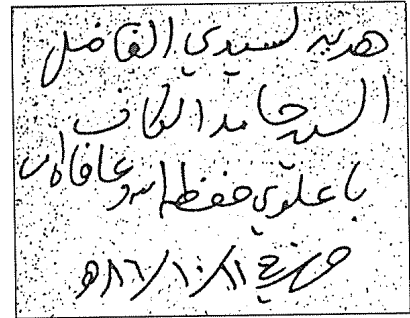 هدية لسيدي الفاضل
السيد حامد الكاف
باعلوي حفظه الله وعافاه
٨٦/١٠/١١هـ